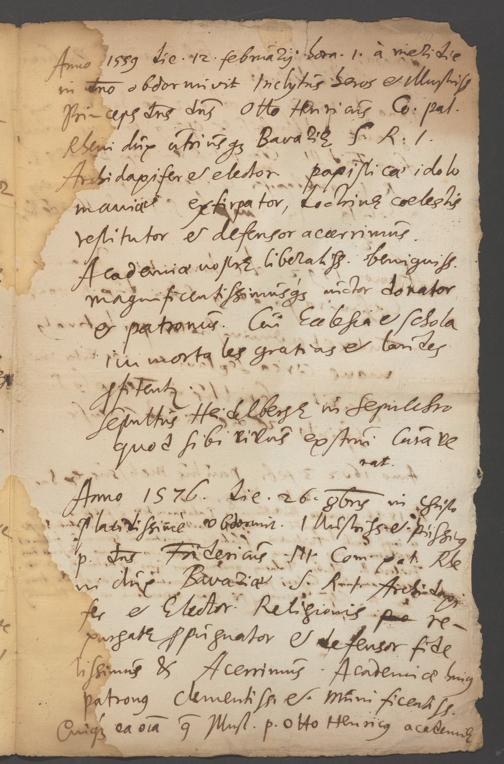 Anno 1559 die 12 februarij hora 1. à meridie
in dno obdormivit Inclytus heros et Illustriss
Princeps dns dns Otto Henricus Co. pal.
Rheni dux utriusq Bavariæ S. R. I.
Archidapifer et elector papisticæ idolo
maniæ extirpator, doctrinæ coelestis
restitutor et defensor acerrimus.
Academiæ nostræ liberaliss. benigniss.
magnificentissimusq instor donator
et patronus. Cui Ecclesia et schola
immortales gratias et laudes
pfitentr.
Sepultus Heidelbergæ in sepulchro
quod sibi vivus exstrui curave
rat.
Anno 1576. die 26. 8bris in christo
placidissime obdormit. Illustriss. et piissimus
p. dns Fridericus Com pal. Rhe
ni dux Bavariæ S. R. I. Archidapi
fer et Elector Religionis re-
purgatæ ppugnator et defensor fide
lissimus & Acerrimus. Academiæ huius
patronus clementiss. et munificentiss.
Cuiq ea oia q Illust. p. Otto Henricus academiæ